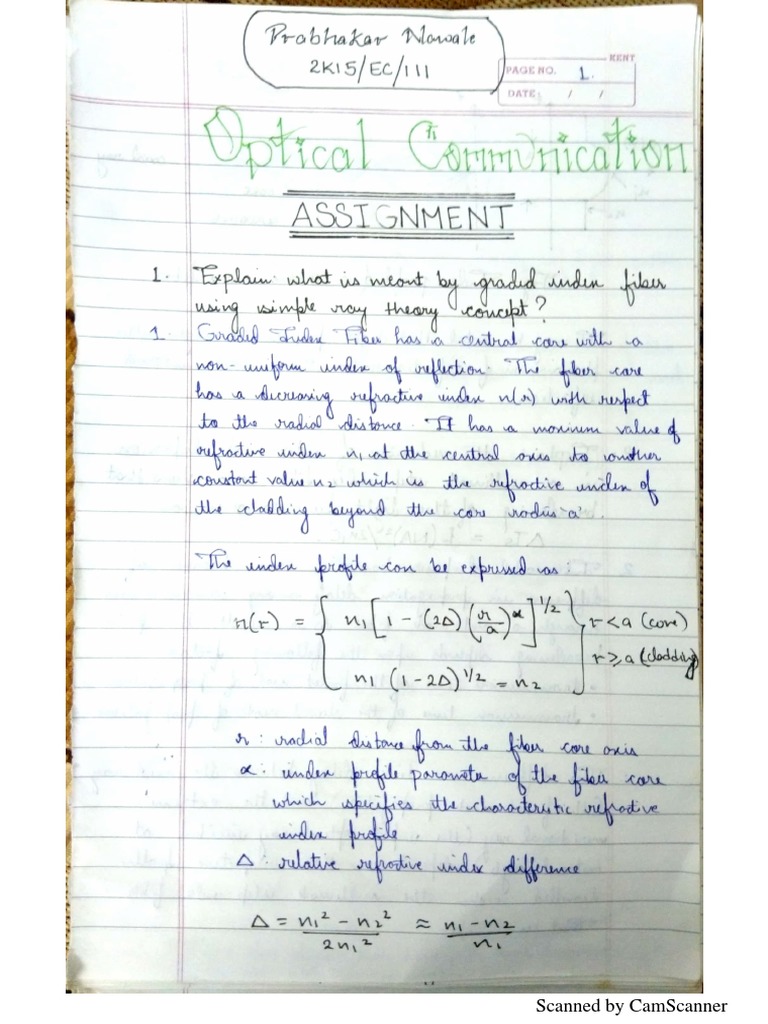 Prabhakar Nawale
2K15/EC/111
KENT
PAGE NO. 1.
DATE: / /
Optical Communication
ASSIGNMENT
1. Explain what is meant by graded index fiber
using simple ray theory concept?
1. Graded Index Fiber has a central core with a
non-uniform index of reflection. The fiber core
has a decreasing refractive index n(r) with respect
to the radial distance. It has a maximum value of
refractive index n₁ at the central axis to another
constant value n₂ which is the refractive index of
the cladding beyond the core radius 'a'.
The index profile can be expressed as
n(r) = { n₁ [1 - (2Δ) (r/a)^α]^1/2 } r < a (core)
n₁ (1 - 2Δ)^1/2 = n₂ } r ≥ a (cladding)
r : radial distance from the fiber core axis
α : index profile parameter of the fiber core
which specifies the characteristic refractive
index profile
Δ : relative refractive index difference
Δ = n₁² - n₂² / 2n₁² ≈ n₁ - n₂ / n₁
Scanned by CamScanner